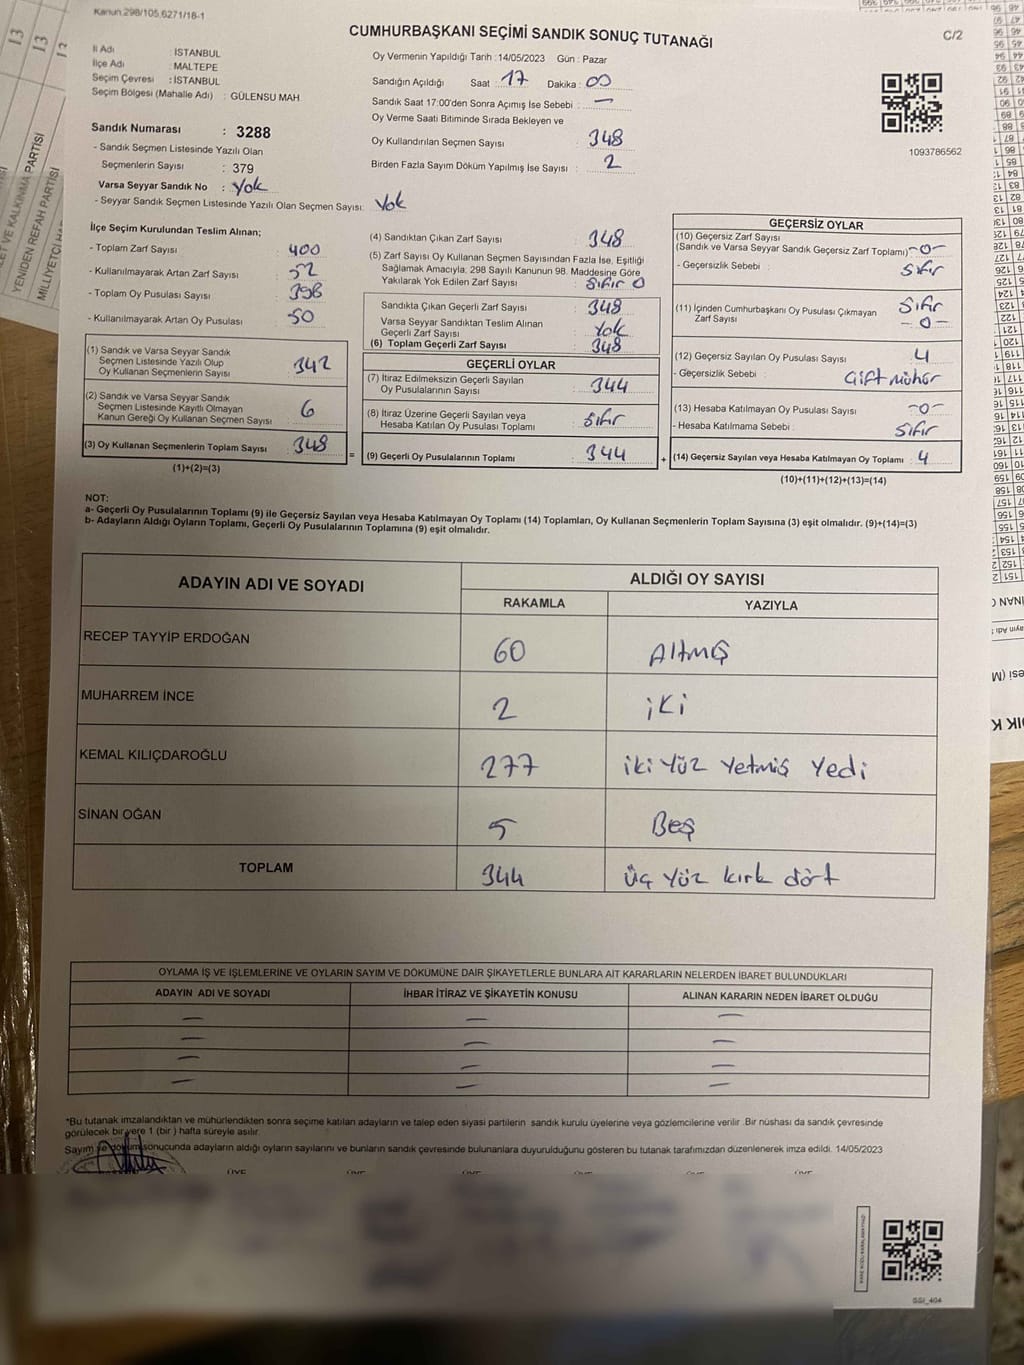 Kanun.298/105,6271/18-1
CUMHURBAŞKANI SEÇİMİ SANDIK SONUÇ TUTANAĞI
C/2
İl Adı : İSTANBUL
İlçe Adı : MALTEPE
Seçim Çevresi : İSTANBUL
Seçim Bölgesi (Mahalle Adı) : GÜLENSU MAH.
Sandık Numarası : 3288
- Sandık Seçmen Listesinde Yazılı Olan
Seçmenlerin Sayısı : 379
Varsa Seyyar Sandık No : Yok
- Seyyar Sandık Seçmen Listesinde Yazılı Olan Seçmen Sayısı: Yok
Oy Vermenin Yapıldığı Tarih :14/05/2023 Gün : Pazar
Sandığın Açıldığı Saat : 17 Dakika : 00
Sandık Saat 17:00'den Sonra Açımış İse Sebebi : —
Oy Verme Saati Bitiminde Sırada Bekleyen ve
Oy Kullandırılan Seçmen Sayısı : 348
Birden Fazla Sayım Döküm Yapılmış İse Sayısı : 2
1093786562
İlçe Seçim Kurulundan Teslim Alınan;
- Toplam Zarf Sayısı : 400
- Kullanılmayarak Artan Zarf Sayısı : 52
- Toplam Oy Pusulası Sayısı : 398
- Kullanılmayarak Artan Oy Pusulası : 50
(1) Sandık ve Varsa Seyyar Sandık
Seçmen Listesinde Yazılı Olup
Oy Kullanan Seçmenlerin Sayısı : 342
(2) Sandık ve Varsa Seyyar Sandık
Seçmen Listesinde Kayıtlı Olmayan
Kanun Gereği Oy Kullanan Seçmen Sayısı : 6
(3) Oy Kullanan Seçmenlerin Toplam Sayısı : 348
(1)+(2)=(3)
(4) Sandıktan Çıkan Zarf Sayısı : 348
(5) Zarf Sayısı Oy Kullanan Seçmen Sayısından Fazla İse, Eşitliği
Sağlamak Amacıyla, 298 Sayılı Kanunun 98. Maddesine Göre
Yakılarak Yok Edilen Zarf Sayısı : Sıfır 0
Sandıkta Çıkan Geçerli Zarf Sayısı : 348
Varsa Seyyar Sandıktan Teslim Alınan
Geçerli Zarf Sayısı : Yok
(6) Toplam Geçerli Zarf Sayısı : 348
GEÇERLİ OYLAR
(7) İtiraz Edilmeksizin Geçerli Sayılan
Oy Pusulalarının Sayısı : 344
(8) İtiraz Üzerine Geçerli Sayılan veya
Hesaba Katılan Oy Pusulaları Toplamı : Sıfır
= (9) Geçerli Oy Pusulalarının Toplamı : 344
GEÇERSİZ OYLAR
(10) Geçersiz Zarf Sayısı
(Sandık ve Varsa Seyyar Sandık Geçersiz Zarf Toplamı) -0-
- Geçersizlik Sebebi : Sıfır
(11) İçinden Cumhurbaşkanı Oy Pusulası Çıkmayan Sıfır
Zarf Sayısı -0-
(12) Geçersiz Sayılan Oy Pusulası Sayısı : 4
- Geçersizlik Sebebi : Çift Mühür
(13) Hesaba Katılmayan Oy Pusulası Sayısı : -0-
- Hesaba Katılmama Sebebi : Sıfır
+ (14) Geçersiz Sayılan veya Hesaba Katılmayan Oy Toplamı : 4
(10)+(11)+(12)+(13)=(14)
NOT:
a- Geçerli Oy Pusulalarının Toplamı (9) ile Geçersiz Sayılan veya Hesaba Katılmayan Oy Toplamı (14) Toplamları, Oy Kullanan Seçmenlerin Toplam Sayısına (3) eşit olmalıdır. (9)+(14)=(3)
b- Adayların Aldığı Oyların Toplamı, Geçerli Oy Pusulalarının Toplamına (9) eşit olmalıdır.
ADAYIN ADI VE SOYADI ALDIĞI OY SAYISI
RAKAMLA YAZIYLA
RECEP TAYYİP ERDOĞAN 60 Altmış
MUHARREM İNCE 2 iki
KEMAL KILIÇDAROĞLU 277 iki Yüz Yetmiş Yedi
SİNAN OĞAN 5 Beş
TOPLAM 344 üç Yüz kırk dört
OYLAMA İŞ VE İŞLEMLERİNE VE OYLARIN SAYIM VE DÖKÜMÜNE DAİR ŞİKAYETLERLE BUNLARA AİT KARARLARIN NELERDEN İBARET BULUNDUKLARI
ADAYIN ADI VE SOYADI İHBAR İTİRAZ VE ŞİKAYETİN KONUSU ALINAN KARARIN NEDEN İBARET OLDUĞU
— — —
— — —
— — —
— — —
*Bu tutanak imzalandıktan ve mühürlendikten sonra seçime katılan adayların ve talep eden siyasi partilerin sandık kurulu üyelerine veya gözlemcilerine verilir. Bir nüshası da sandık çevresinde
görülecek bir yere 1 (bir ) hafta süreyle asılır.
Sayım ve döküm sonucunda adayların aldığı oyların sayılarını ve bunların sandık çevresinde bulunanlara duyurulduğunu gösteren bu tutanak tarafımızdan düzenlenerek imza edildi. 14/05/2023
GSI_404
YENİDEN REFAH PARTİSİ
13
13